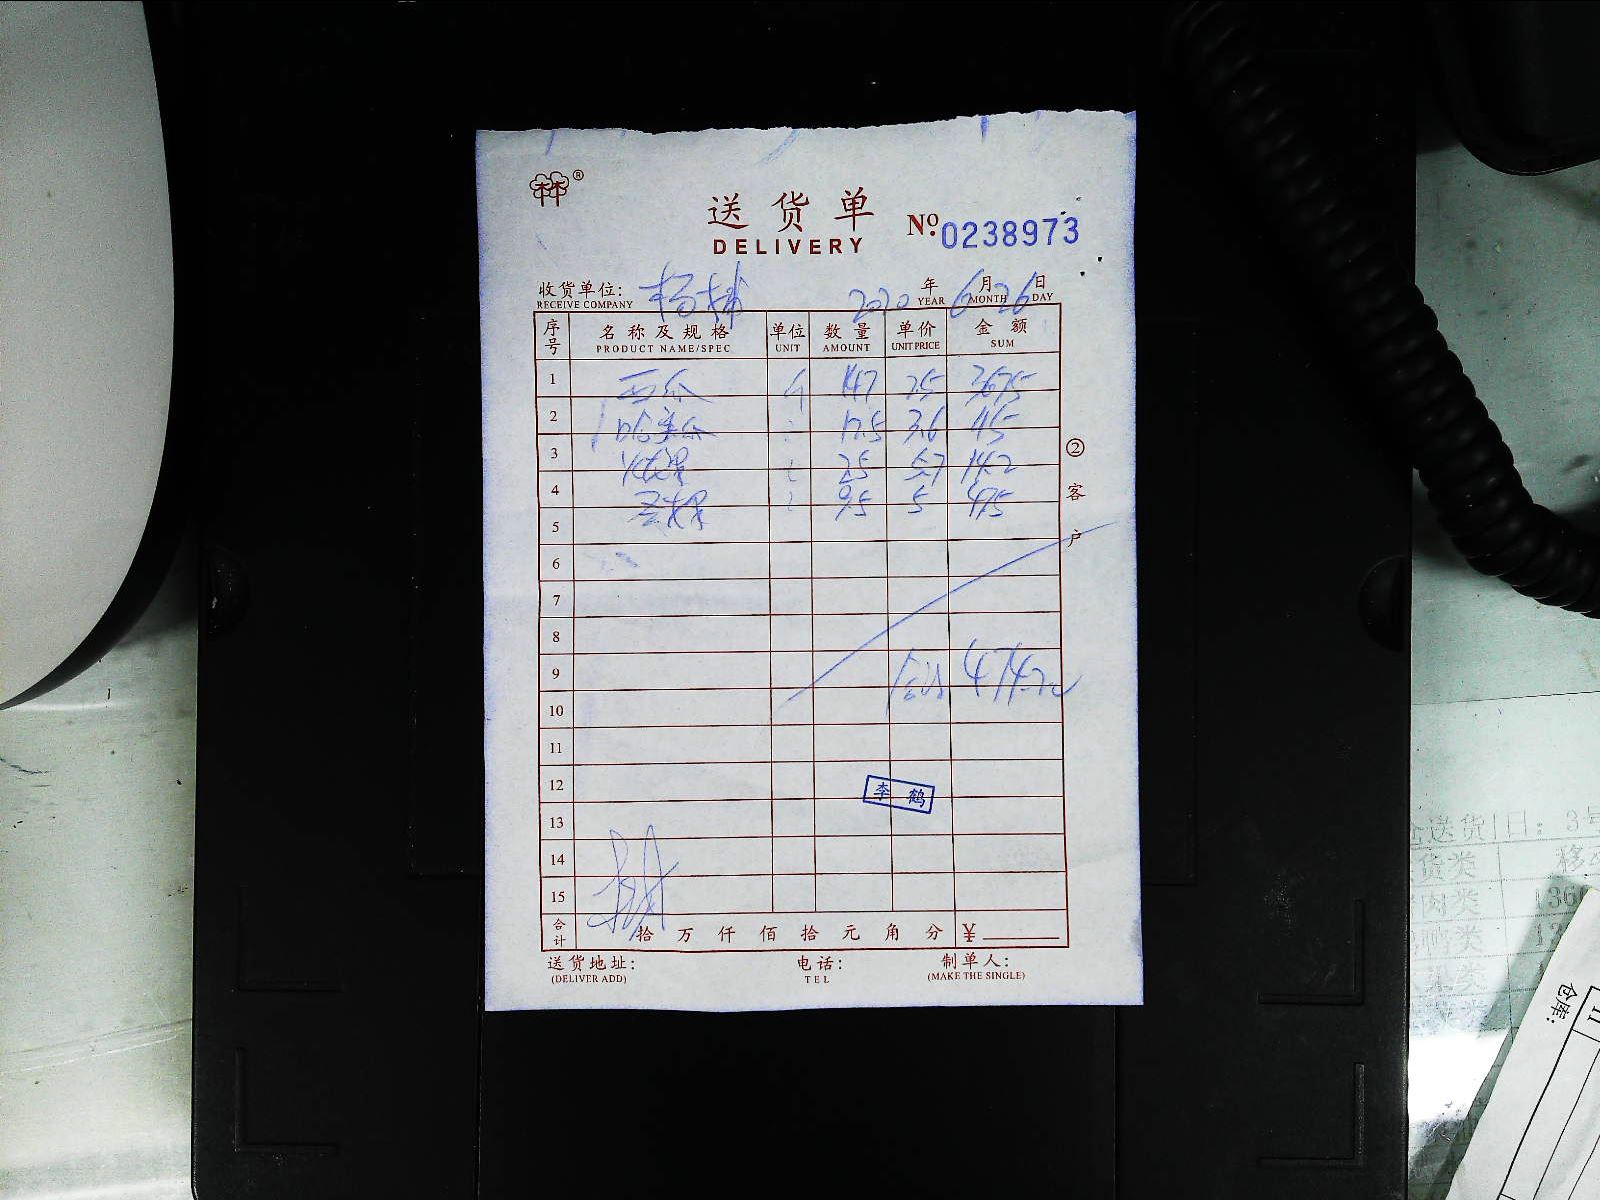 林林®
送货单
DELIVERY
№.0238973
收货单位: 杨梯 2020年 6月 26日
RECEIVE COMPANY YEAR MONTH DAY
序号 名称及规格 单位 数量 单价 金额
PRODUCT NAME/SPEC UNIT AMOUNT UNIT PRICE SUM
1 西瓜 斤 147 2.5 367.5
2 哈密瓜 12.5 3.6 45
3 火龙果 2.5 5.7 14.2
4 芒果 9.5 5 47.5
5
6
7
8
9 合计 474.2元
10
11
12 李鹤
13
14
15
合计 拾万仟佰拾元角分 ¥
送货地址: 电话: 制单人:
(DELIVER ADD) TEL (MAKE THE SINGLE)
②客户
送货 日: 3号
货类
肉类 136
鸭类
仓库: